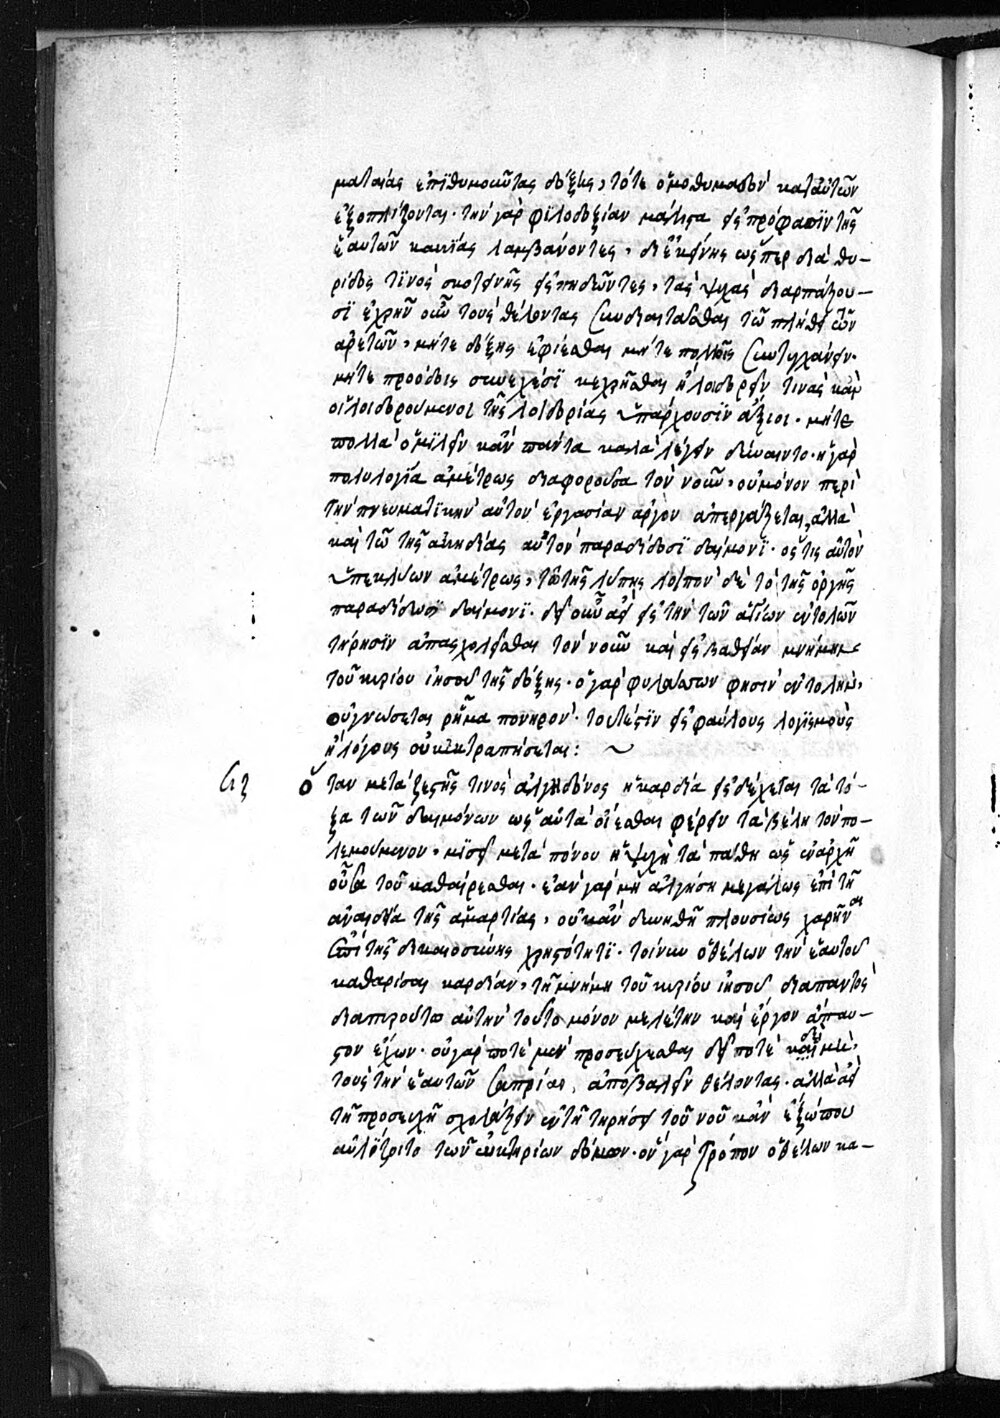 ματαίας ἐπϊθυμοῦντας δόξης, τότε ὁμοθυμαδὸν κατ αὐτῶν
ἐξοπλίζονται· τὴν γὰρ φϊλοδοξίαν μάλιστα εἰς πρόφασϊν τῆς
ἑαυτῶν κακίας λαμβάνοντες, δι' ἐκείνης ὥσπερ διὰ θυ-
ρίδος τϊνὸς σκοτεινῆς εἰσπηδῶντες, τὰς ψυχὰς διαρπάζου-
σϊ ἐχρῆν οὖν τοὺς θέλοντας συνδιαιτᾶσθαι τῶ πλήθει τῶν
ἀρετῶν, μήτε δόξης ἐφίεσθαι μήτε πολλοῖς συντυγχάνειν·
μήτε προόδοις συνεχέσϊ κεχρῆσθαι ἢ λοιδορεῖν τινὰς κἂν
οἱ λοιδορούμενοι τῆς λοιδορίας ὑπάρχουσϊν ἄξιοι· μήτε
πολλὰ ὁμϊλεῖν κἂν πάντα καλὰ λέγειν δύναιντο· ἡ γὰρ
πολυλογία ἀμέτρως διαφοροῦσα τὸν νοῦν, οὐ μόνον περὶ
τὴν πνευματϊκὴν αὐτὸν ἐργασίαν ἀργὸν ἀπεργάζεται, ἀλλὰ
καὶ τῶ τῆς ἀκηδίας αὐτὸν παραδίδωσϊ δαίμονϊ· ὅς τις αὐτὸν
ὑπεκλύων ἀμέτρως, τῶ τῆς λύπης λοιπὸν δὲ τὸ τῆς ὀργῆς
παραδίδωσϊ δαίμονϊ· δεῖ οὖν ἀεὶ εἰς τὴν τῶν ἁγίων ἐντολῶν
τήρησϊν ἀπασχολεῖσθαι τὸν νοῦν καὶ εἰς βαθεῖαν μνήμην
τοῦ κυρίου ἰησοῦ τῆς δόξης· ὁ γὰρ φυλάσσων φησὶν ἐντολὴν,
οὐ γνώσεται ῥῆμα πονηρόν· τουτέστϊν εἰς φαύλους λογϊσμοὺς
ἢ λόγους οὐκ ἐκτραπήσεται: ~
ϟζ ὅταν μετὰ ζεστῆς τινὸς ἀλγηδόνος ἡ καρδία εἰσδέχεται τὰ τό-
ξα τῶν δαιμόνων ὡς αὐτὰ οἴεσθαι φέρειν τὰ βέλη τὸν πο-
λεμούμενον, μϊσεῖ μετὰ πόνου ἡ ψυχὴ τὰ πάθη ὡς ἐν ἀρχῇ
οὖσα τοῦ καθαίρεσθαι· ἐὰν γὰρ μὴ ἀλγήση μεγάλως ἐπὶ τῇ
ἀναιδεία τῆς ἁμαρτίας, οὐκ ἂν δυνηθῇ πλουσίως χαρῆναι
ἐπὶ τῆς δικαιοσύνης χρηστότητϊ· τοίνυν ὁ θέλων τὴν ἑαυτοῦ
καθαρίσαι καρδίαν, τῇ μνήμη τοῦ κυρίου ἰησοῦ διαπαντὸς
διαπυρούτω αὐτὴν τοῦτο μόνον μελέτην καὶ ἔργον ἄπαυ-
στον ἔχων· οὐ γὰρ ποτὲ μὲν προσεύχεσθαι δεῖ ποτὲ δὲ μὴ,
τοὺς τὴν ἑαυτῶν σαπρίαν, ἀποβαλεῖν θέλοντας· ἀλλὰ ἀεὶ
τῇ προσευχῇ σχολάζειν ἐν τῇ τηρήσει τοῦ νοῦ κἂν ἔξω που
αὐλίζοιτο τῶν εὐκτηρίων δόμων· ὃν γὰρ τρόπον ὁ θέλων κα-